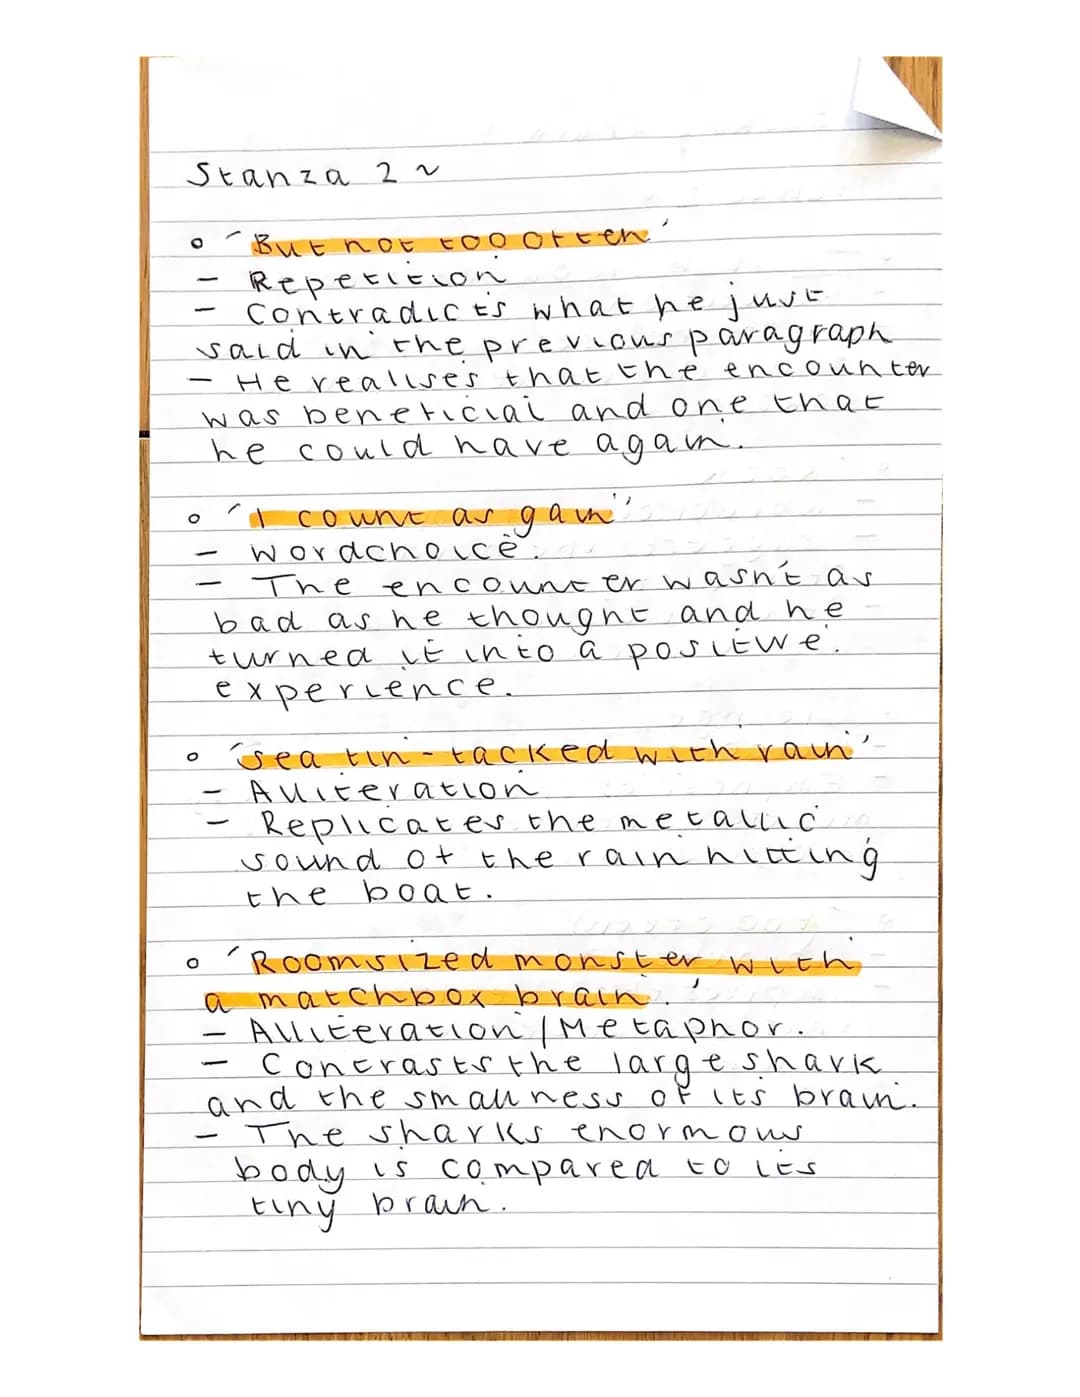 Stanza 2 ~
o 'But not too often'
- Repetition
- Contradicts what he just
said in the previous paragraph
- He realises that the encounter
was beneficial and one that
he could have again.
o 'I count as gain'
- wordchoice.
- The encounter wasn't as
bad as he thought and he
turned it into a positive
experience.
o 'sea tin-tacked with rain'
- Alliteration
- Replicates the metallic
sound of the rain hitting
the boat.
o 'Roomsized monster with
a matchbox brain.'
- Alliteration/Metaphor.
- Contrasts the large shark
and the smallness of its brain.
- The sharks enormous
body is compared to its
tiny brain.